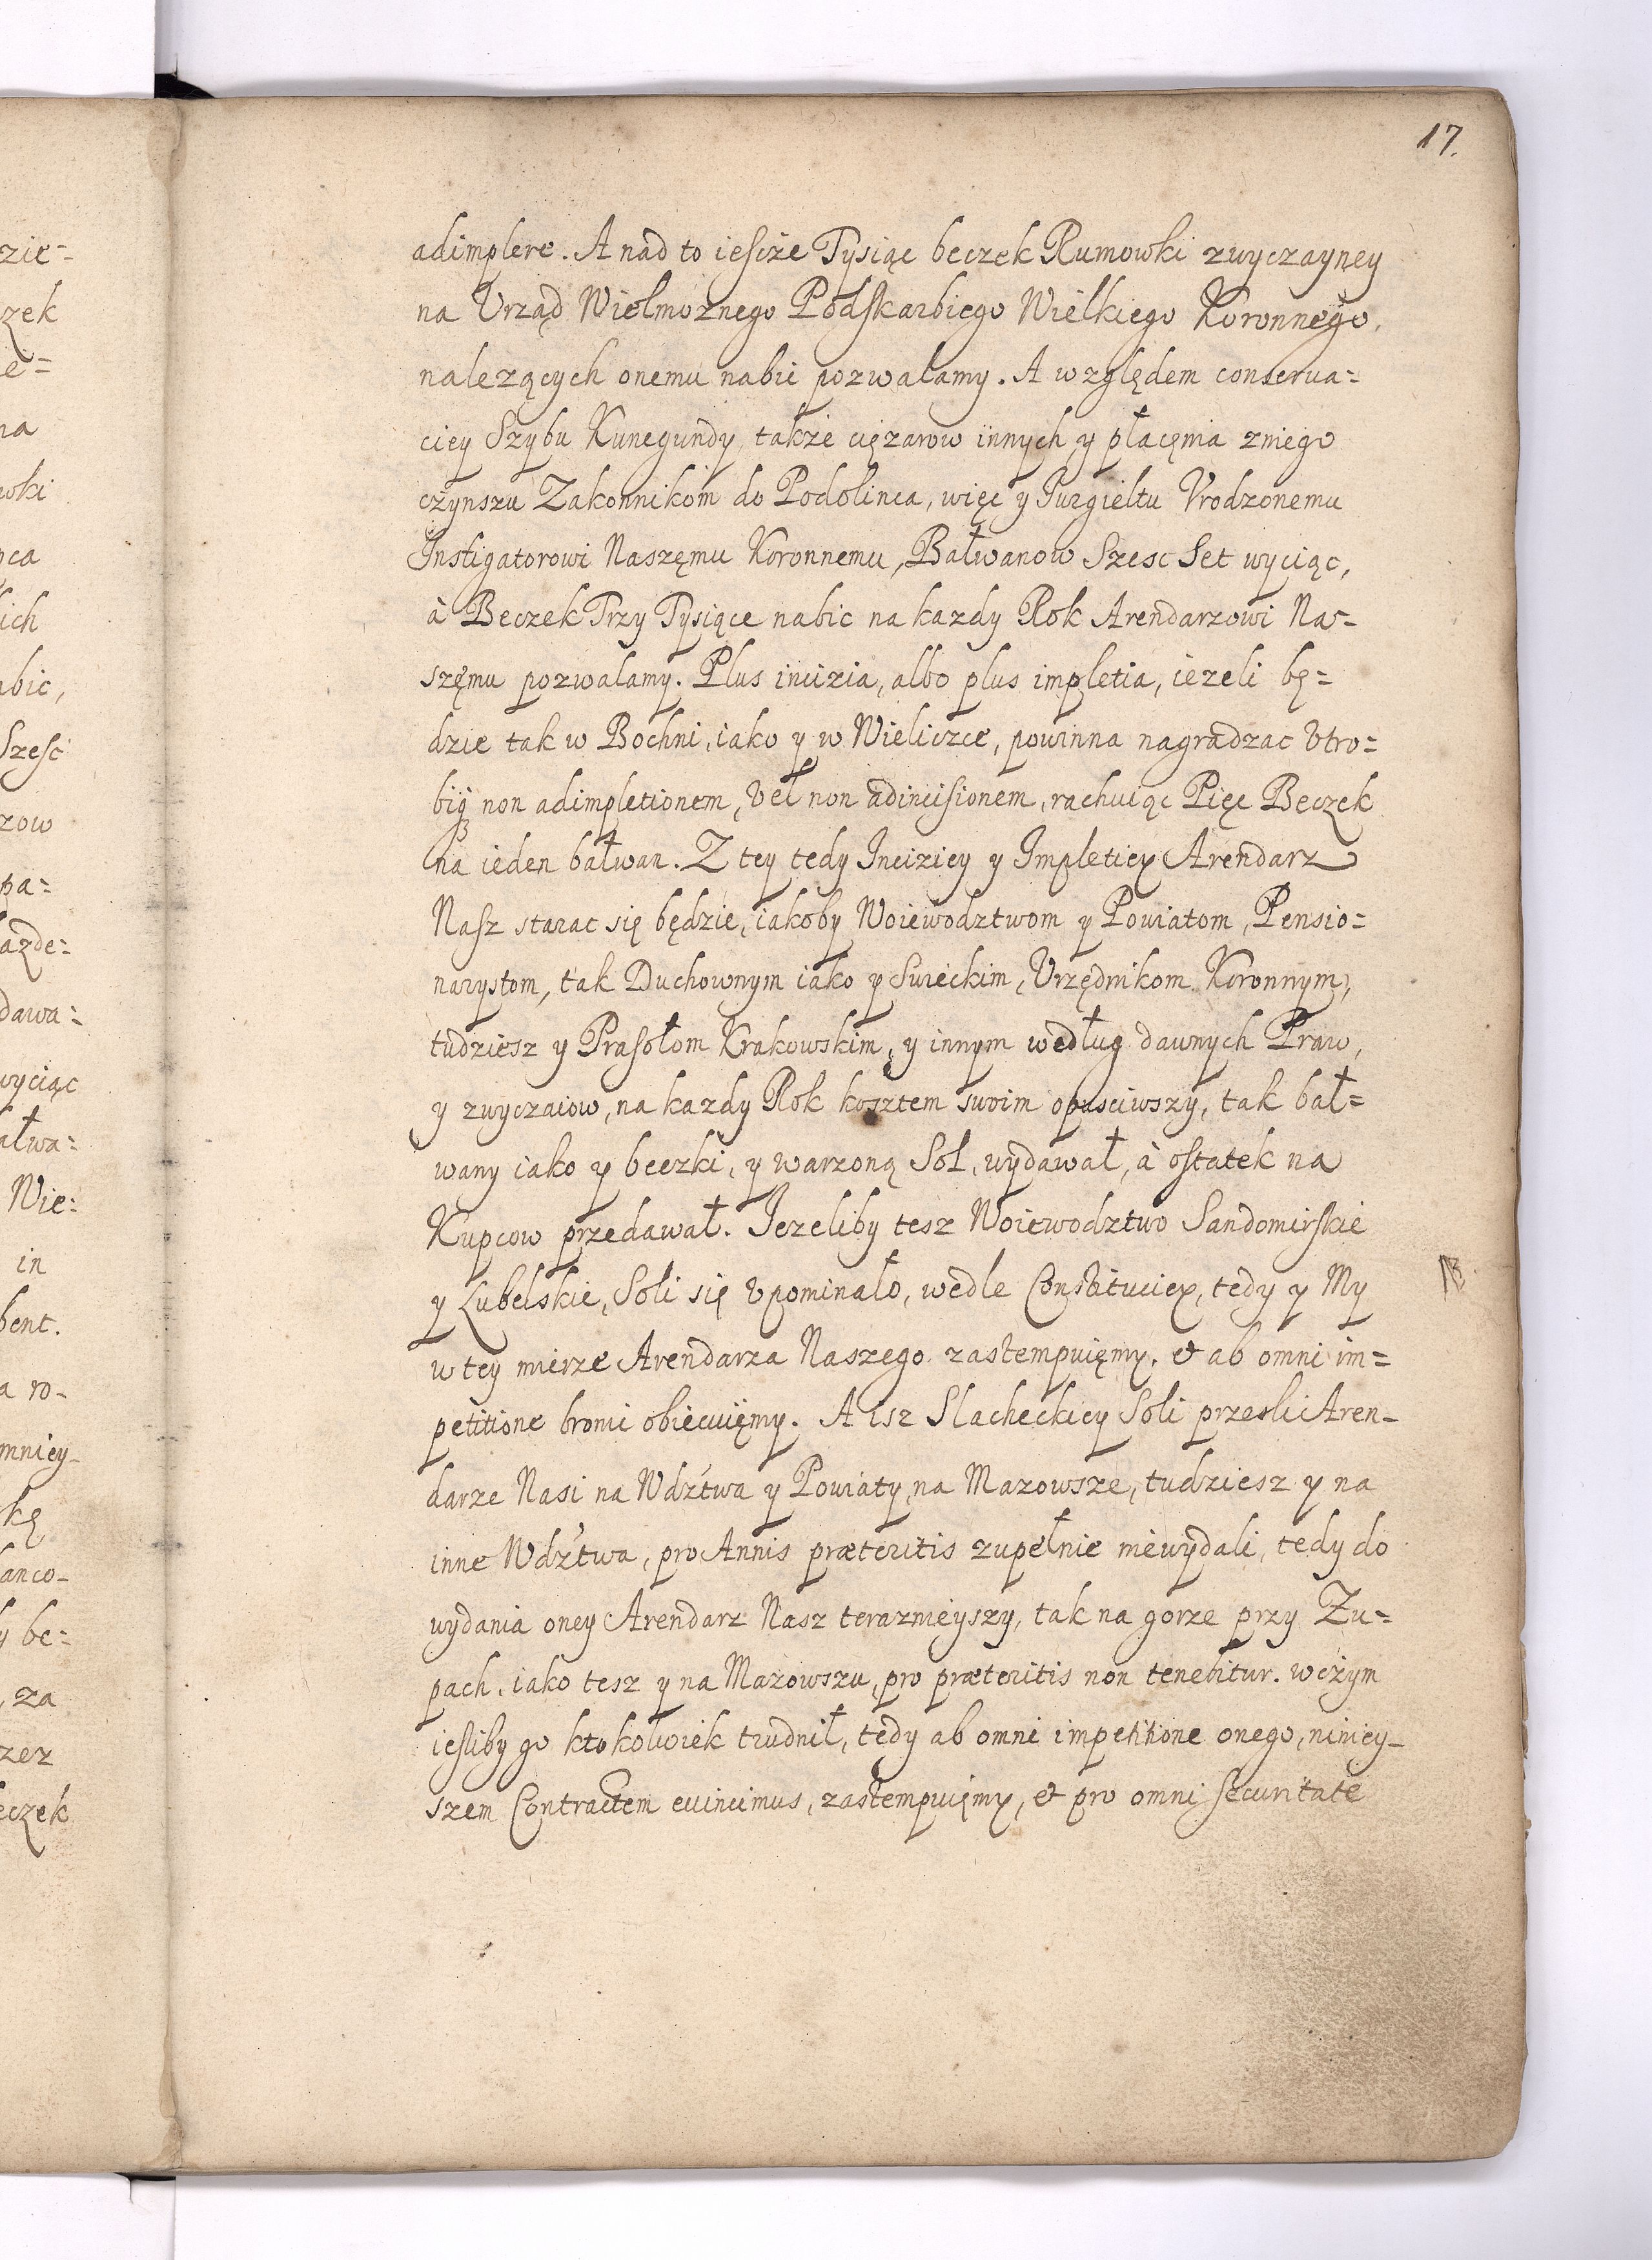 17.
adimplere. A nad to iescze Tysiąc beczek Rumowki zwyczayney
na Vrząd Wielmoznego Podskarbiego Wielkiego Koronnego,
nalezących onemu nabic pozwalamy. A względem conserua=
ciey Szybu Kunegundy, takze cięzarow innych y płacęnia zniego
czynszu Zakonnikom do Podolinca, więc y Iurgieltu Vrodzonemu
Instigatorowi Naszęmu Koronnemu, Bałwanow Szesc Set wyciąc,
à Beczek Trzy Tysiące nabic na kazdy Rok Arendarzowi Na-
szęmu pozwalamy. Plus incizia, albo plus impletia, iezeli bę=
dzie tak w Bochni, iako y w Wieliczce, powinna nagradzac Vtro=
biq non adimpletionem, vel non adincisionem, rachuiąc Pięc Beczek
na ieden bałwan. Z tey tedy Inciziey y Impletiey Arendarz
Nasz starac się będzie, iakoby Woiewodztwom y Powiatom, Pensio=
narystom, tak Duchownym iako y Swieckim, Vrzędnikom Koronnym,
tudziesz y Prasołom Krakowskim, y innym według dawnych Praw,
y zwyczaiow, na kazdy Rok kosztem swoim opusciwszy, tak bał=
wany iako y beczki, y warzoną Sol, wydawał, à ostatek na
Kupcow przedawał. Iezeliby tesz Woiewodztwo Sandomirskie
y Lubelskie, Soli się vpominało, wedle Constituciey, tedy y My
NB.
w tey mierze Arendarza Naszego zastempuięmy, et ab omni im=
petitione bronic obiecuięmy. A isz Slacheckiey Soli przesli Aren-
darze Nasi na Wdztwa y Powiaty, na Mazowsze, tudziesz y na
inne Wdztwa, pro Annis præteritis zupełnie niewydali, tedy do
wydania oney Arendarz Nasz teraznieyszy, tak na gorze przy Zu=
pach, iako tesz y na Mazowszu, pro præteritis non tenebitur. wczym
iesliby go ktokolwiek trudnił, tedy ab omni impetitione onego, niniey-
szem Contractem euincimus, zastempuięmy, et pro omni securitate